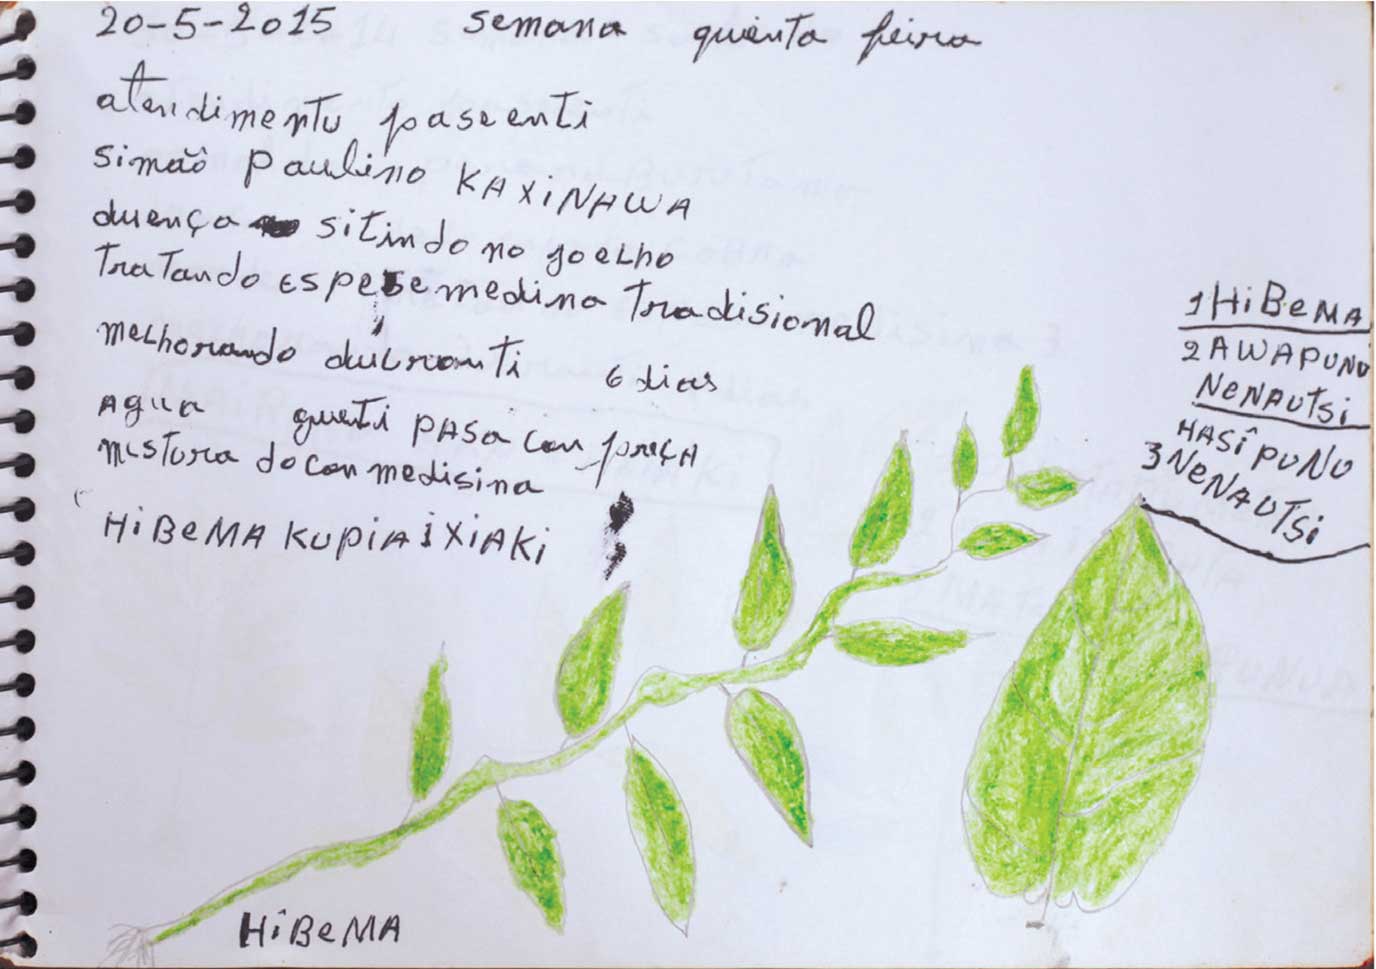 20-5-2015 semana quinta feira
atendimentu pascenti
simão Paulino KAXiNAWA
duença sitindo no joeLho
tratando espese medina tradisional
meLhorando durranti 6 dias
AgUA quenti PASA con preçA
mistura do con medisina
HiBeMA KUPiAiXiAKi
1 HiBeMA
2 AWAPUNU
NeNAUTSi
HASÎPUNU
3 NeNAUTSi
HiBeMA